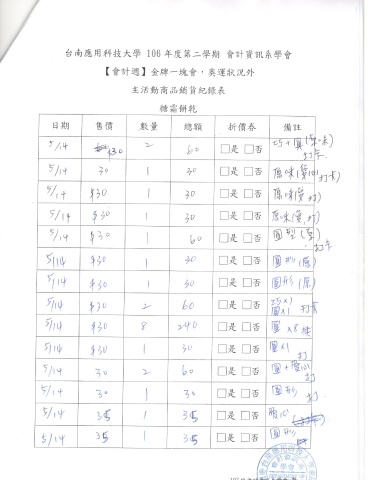 台南應用科技大學 106 年度第二學期 會計資訊系學會
【會計週】金牌一塊會，奧運狀況外
主活動商品銷貨紀錄表
糖霜餅乾
日期 售價 數量 總額 折價券 備註
5/14 $30 2 60 □是 □否
5/14 30 1 30 □是 □否 原味(愛心 打卡)
5/14 $30 1 30 □是 □否 原味(愛 打)
5/14 $30 1 30 □是 □否 原味(愛,打)
5/14 $30 1 60 □是 □否 圓型(原) 打卡
5/14 $30 1 30 □是 □否 圓形(原)
5/14 $30 1 30 □是 □否 圓形(原)
5/14 $30 2 60 □是 □否 巧x1 圓x1 打卡
5/14 $30 8 240 □是 □否 圓 x8
5/14 $30 1 30 □是 □否 圓x1 打
5/14 30 2 60 □是 □否 圓+愛心 打
5/14 30 1 30 □是 □否 圓形 打
5/14 35 1 35 □是 □否 愛心
5/14 35 1 35 □是 □否 圓形